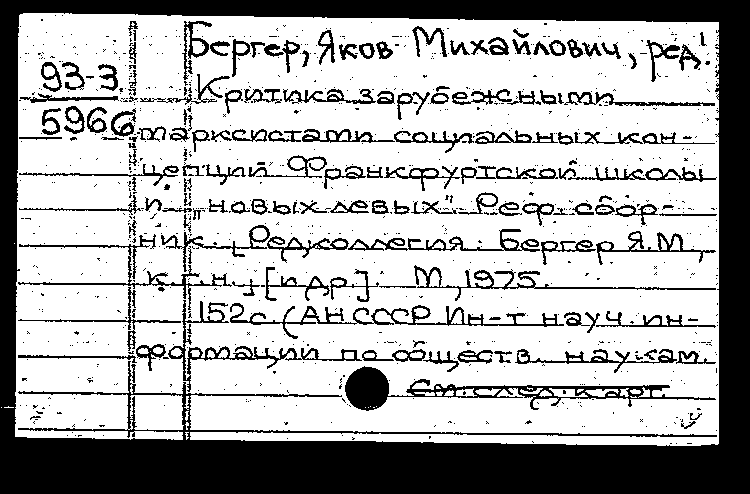 Бергер, Яков Михайлович, ред.
93-3
5966
Критика зарубежными
марксистами социальных кон-
цепций Франкфуртской школы
и „новых левых". Реф. сбор-
ник. [Редколлегия: Бергер Я.М.,
к.г.н.,] [и др.]. М., 1975.
152с. (АН СССР. Ин-т науч. ин-
формации по обществ. наукам.
См. след. карт.